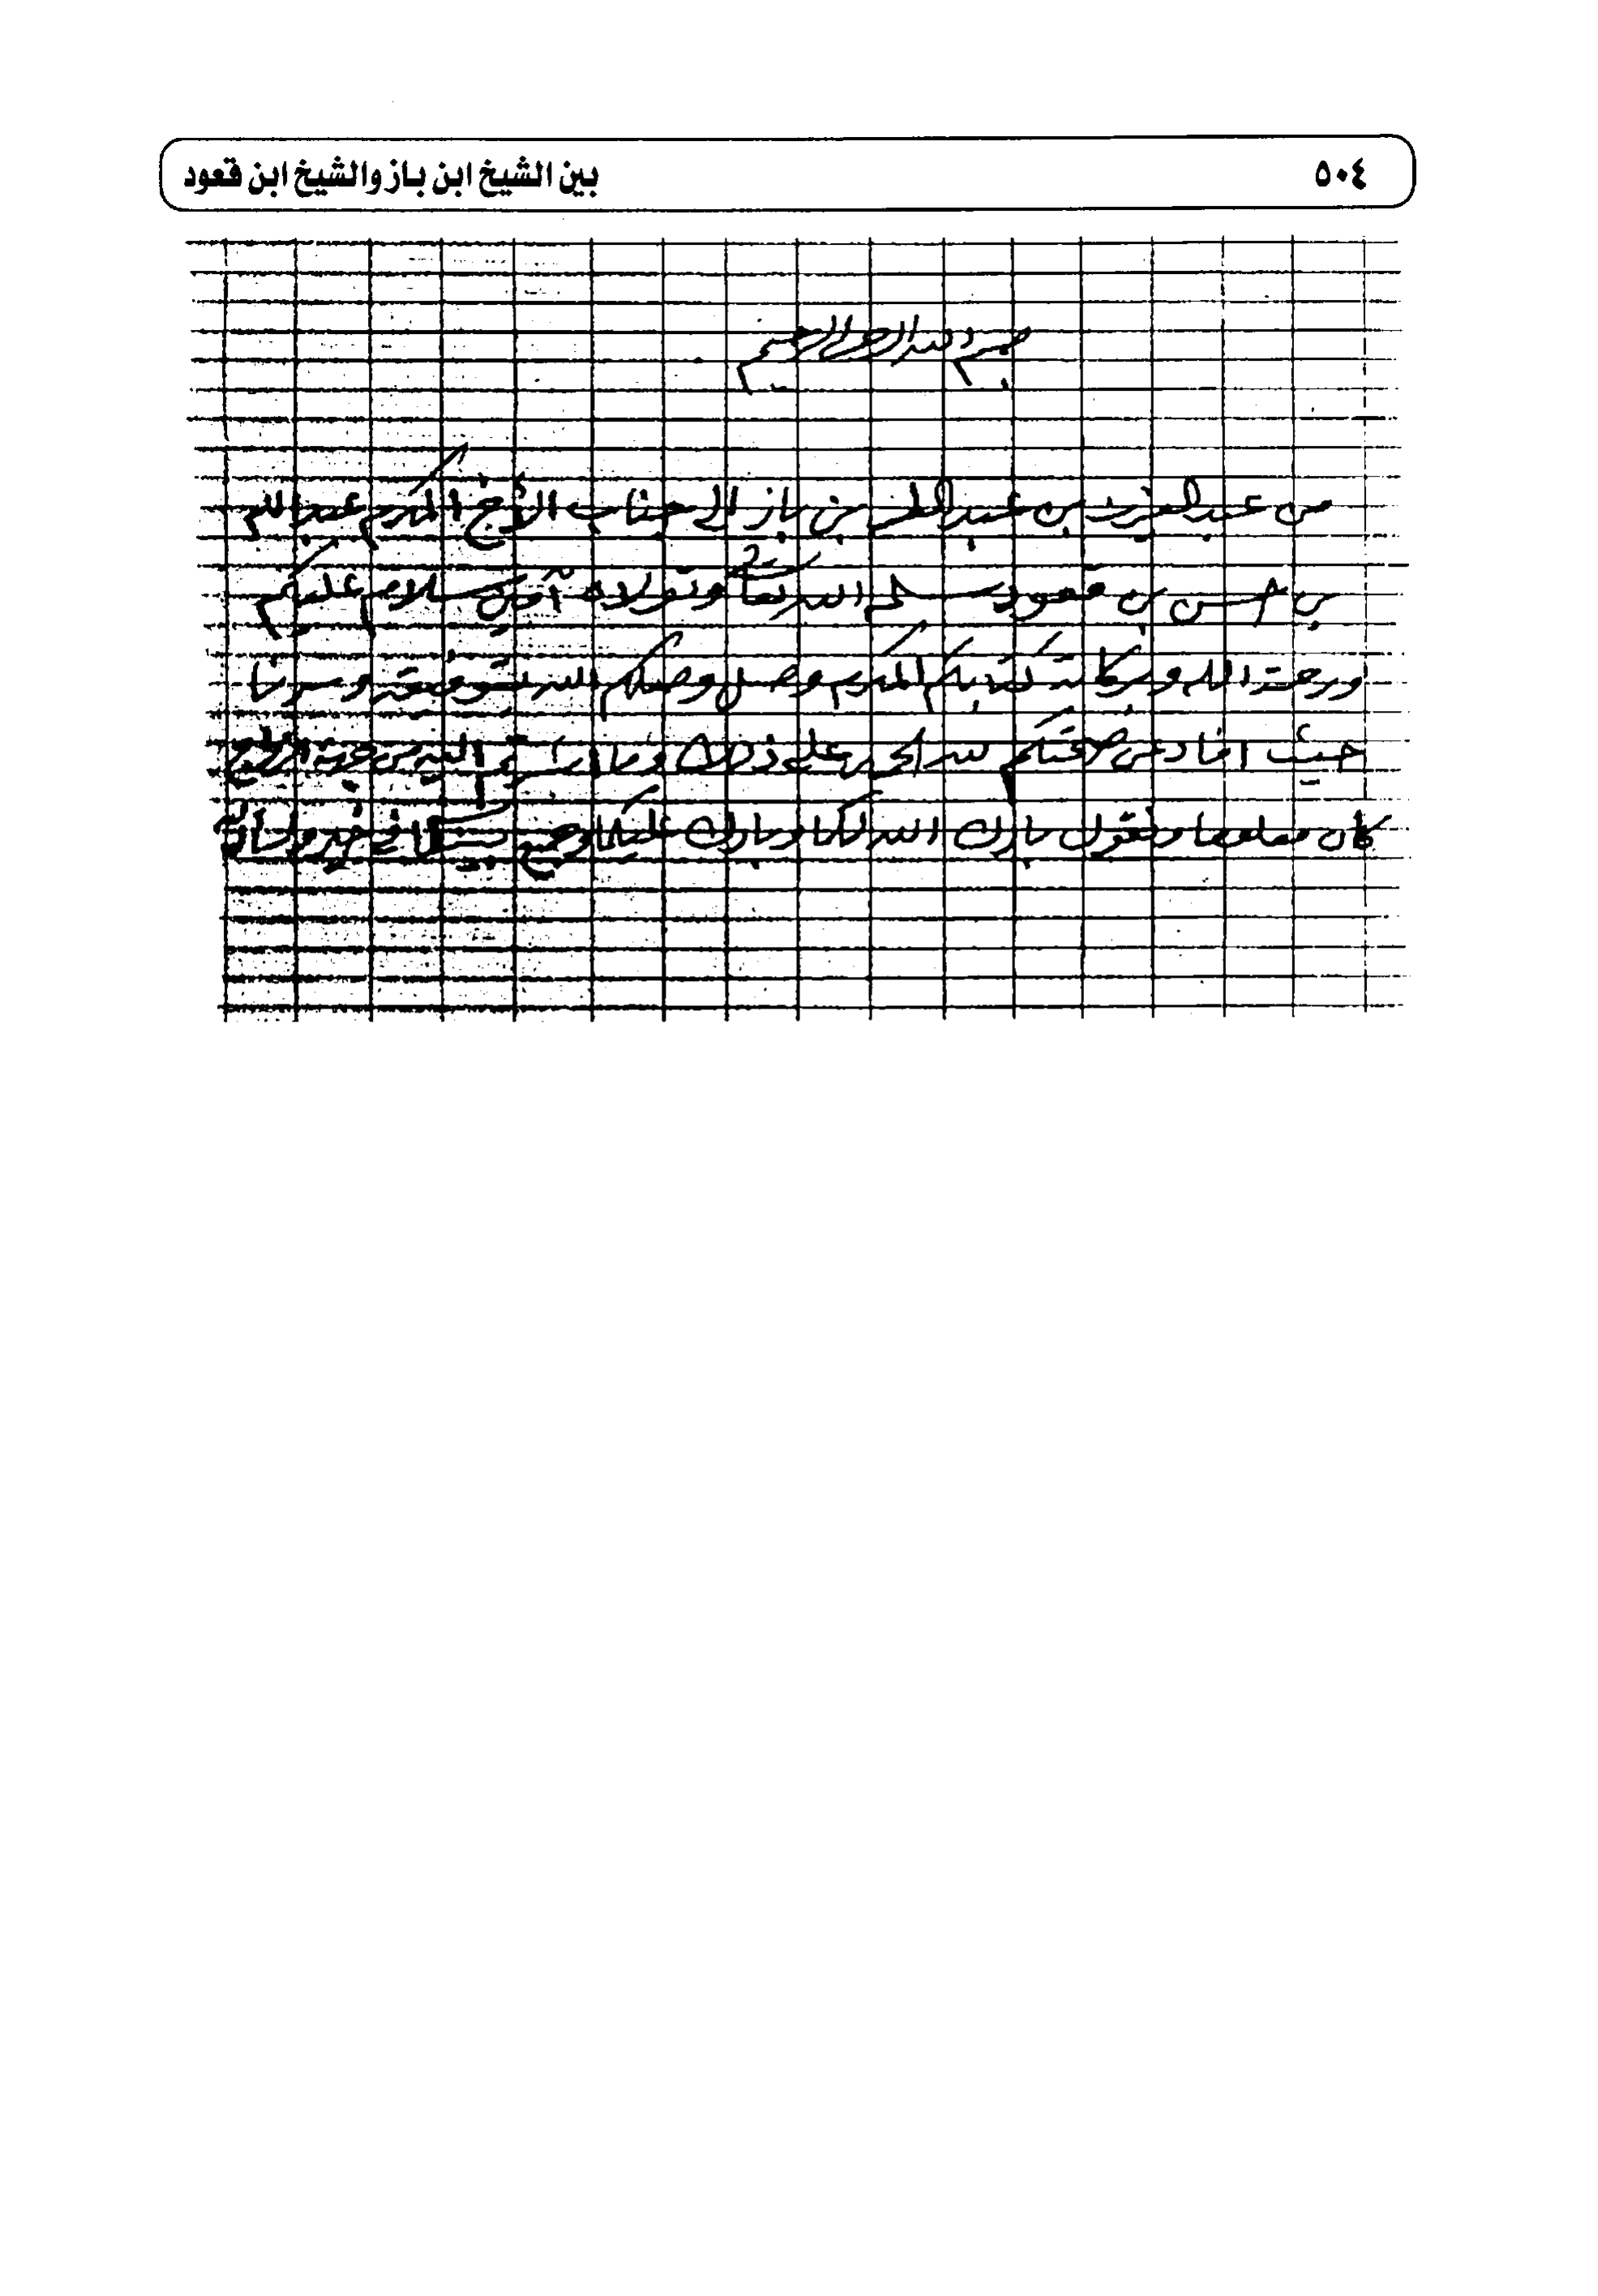 ٥٠٤
بين الشيخ ابن باز والشيخ ابن قعود
بسم الله الرحمن الرحيم
من عبد العزيز بن عبد الله بن باز إلى جناب الأخ المكرم عبد الله
بن حسن بن قعود سلمه الله تعالى وتولاه آمين سلام عليكم
ورحمة الله وبركاته كتابكم المكرم وصل وصلكم الله بتوفيقه وسرنا
حيث أفاد عن صحتكم لله الحمد على ذلك وما أشرتم إليه من
كان معلوما ونقول بارك الله لكما وبارك عليكما وجمع بينكما في خير